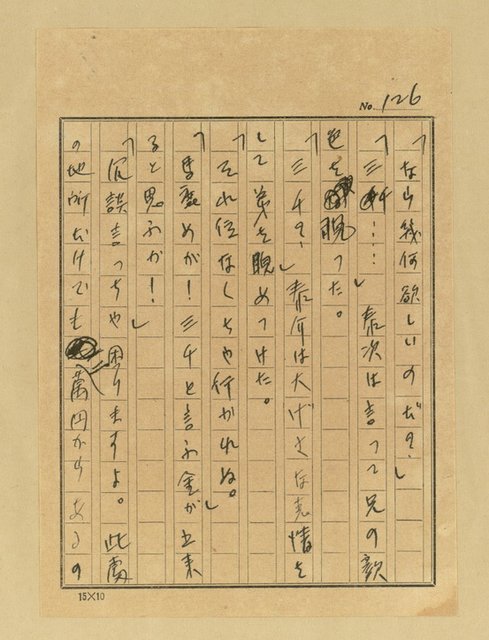 No. 126
「なら幾何欲しいのだ？」
「三千！！」　泰次は言って兄の顔
色を睨った。
「三千？」　泰介は大げさな表情を
して弟を睨めつけた。
「それ位なくちや行かれぬ。」
「馬鹿めが！三千と言ふ金が出来
ると思ふか！」
「冗談言っちや困りますよ。此處
の地所だけでも　萬円からあるの
15×10